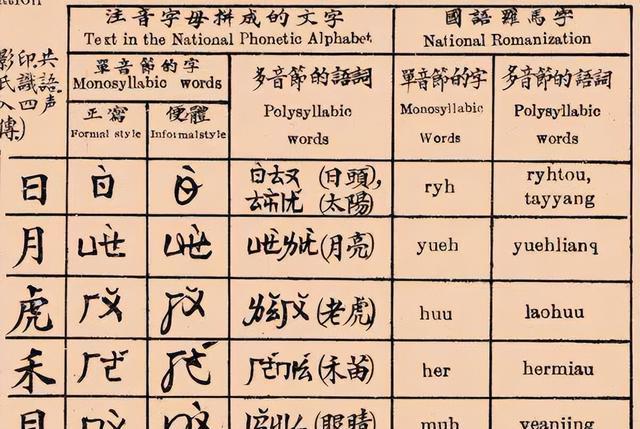 影印共
氏識語.
入四声
傳)
注音字母拼成的文字
Text in the National Phonetic Alphabet
國語羅馬字
National Romanization
單音節的字
Monosyllabic words
多音節的語詞
Polysyllabic
words
單音節的字
Monosyllabic
Words
多音節的語詞
Polysyllabic
words
正寫
Formal style
便體
Informal style
日
(日頭),
(太陽)
ryh
ryhtou,
tayyang
月
ㄩㄝ
ㄩㄝ
(月亮)
yueh
yuehlianq
虎
ㄏㄨ
ㄏㄨ
(老虎)
huu
laohuu
禾
ㄏㄜ
ㄏㄜ
(禾苗)
her
hermiau
目
(眼睛)
muh
yeanjing